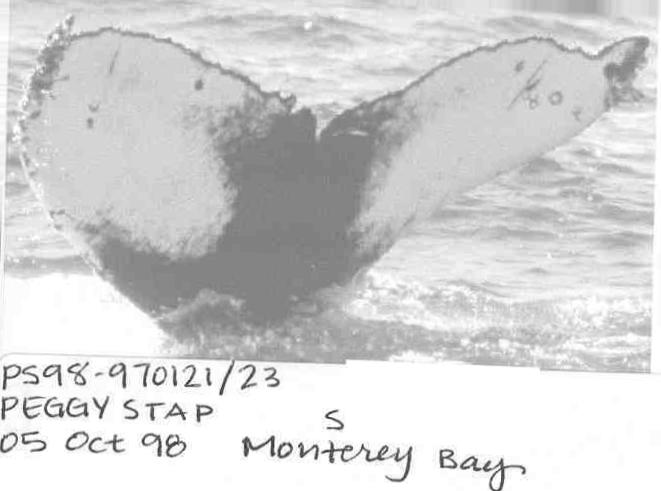 PS98-970121/23
PEGGY STAP
S
05 Oct 98 Monterey Bay